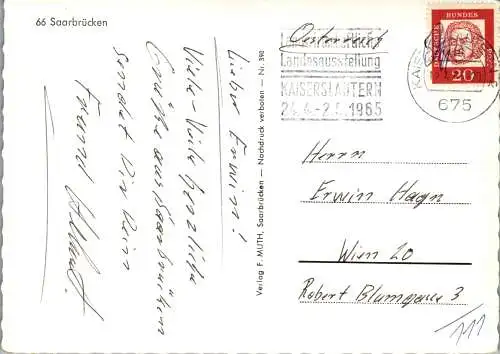 66 Saarbrücken
Lieber Erwin!
Viele - Viele herzliche
Grüße aus Saarbrücken
sendet Dir Dein
Freund
Verlag F. MUTH, Saarbrücken — Nachdruck verboten — Nr. 390
Österreich
Landesausstellung
KAISERSLAUTERN
24.4.-2.5.1965
KAISE
675
DEUTSCHE BUNDES
20
Herrn
Erwin Hagn
Wien 20
Robert Blumgasse 3
111